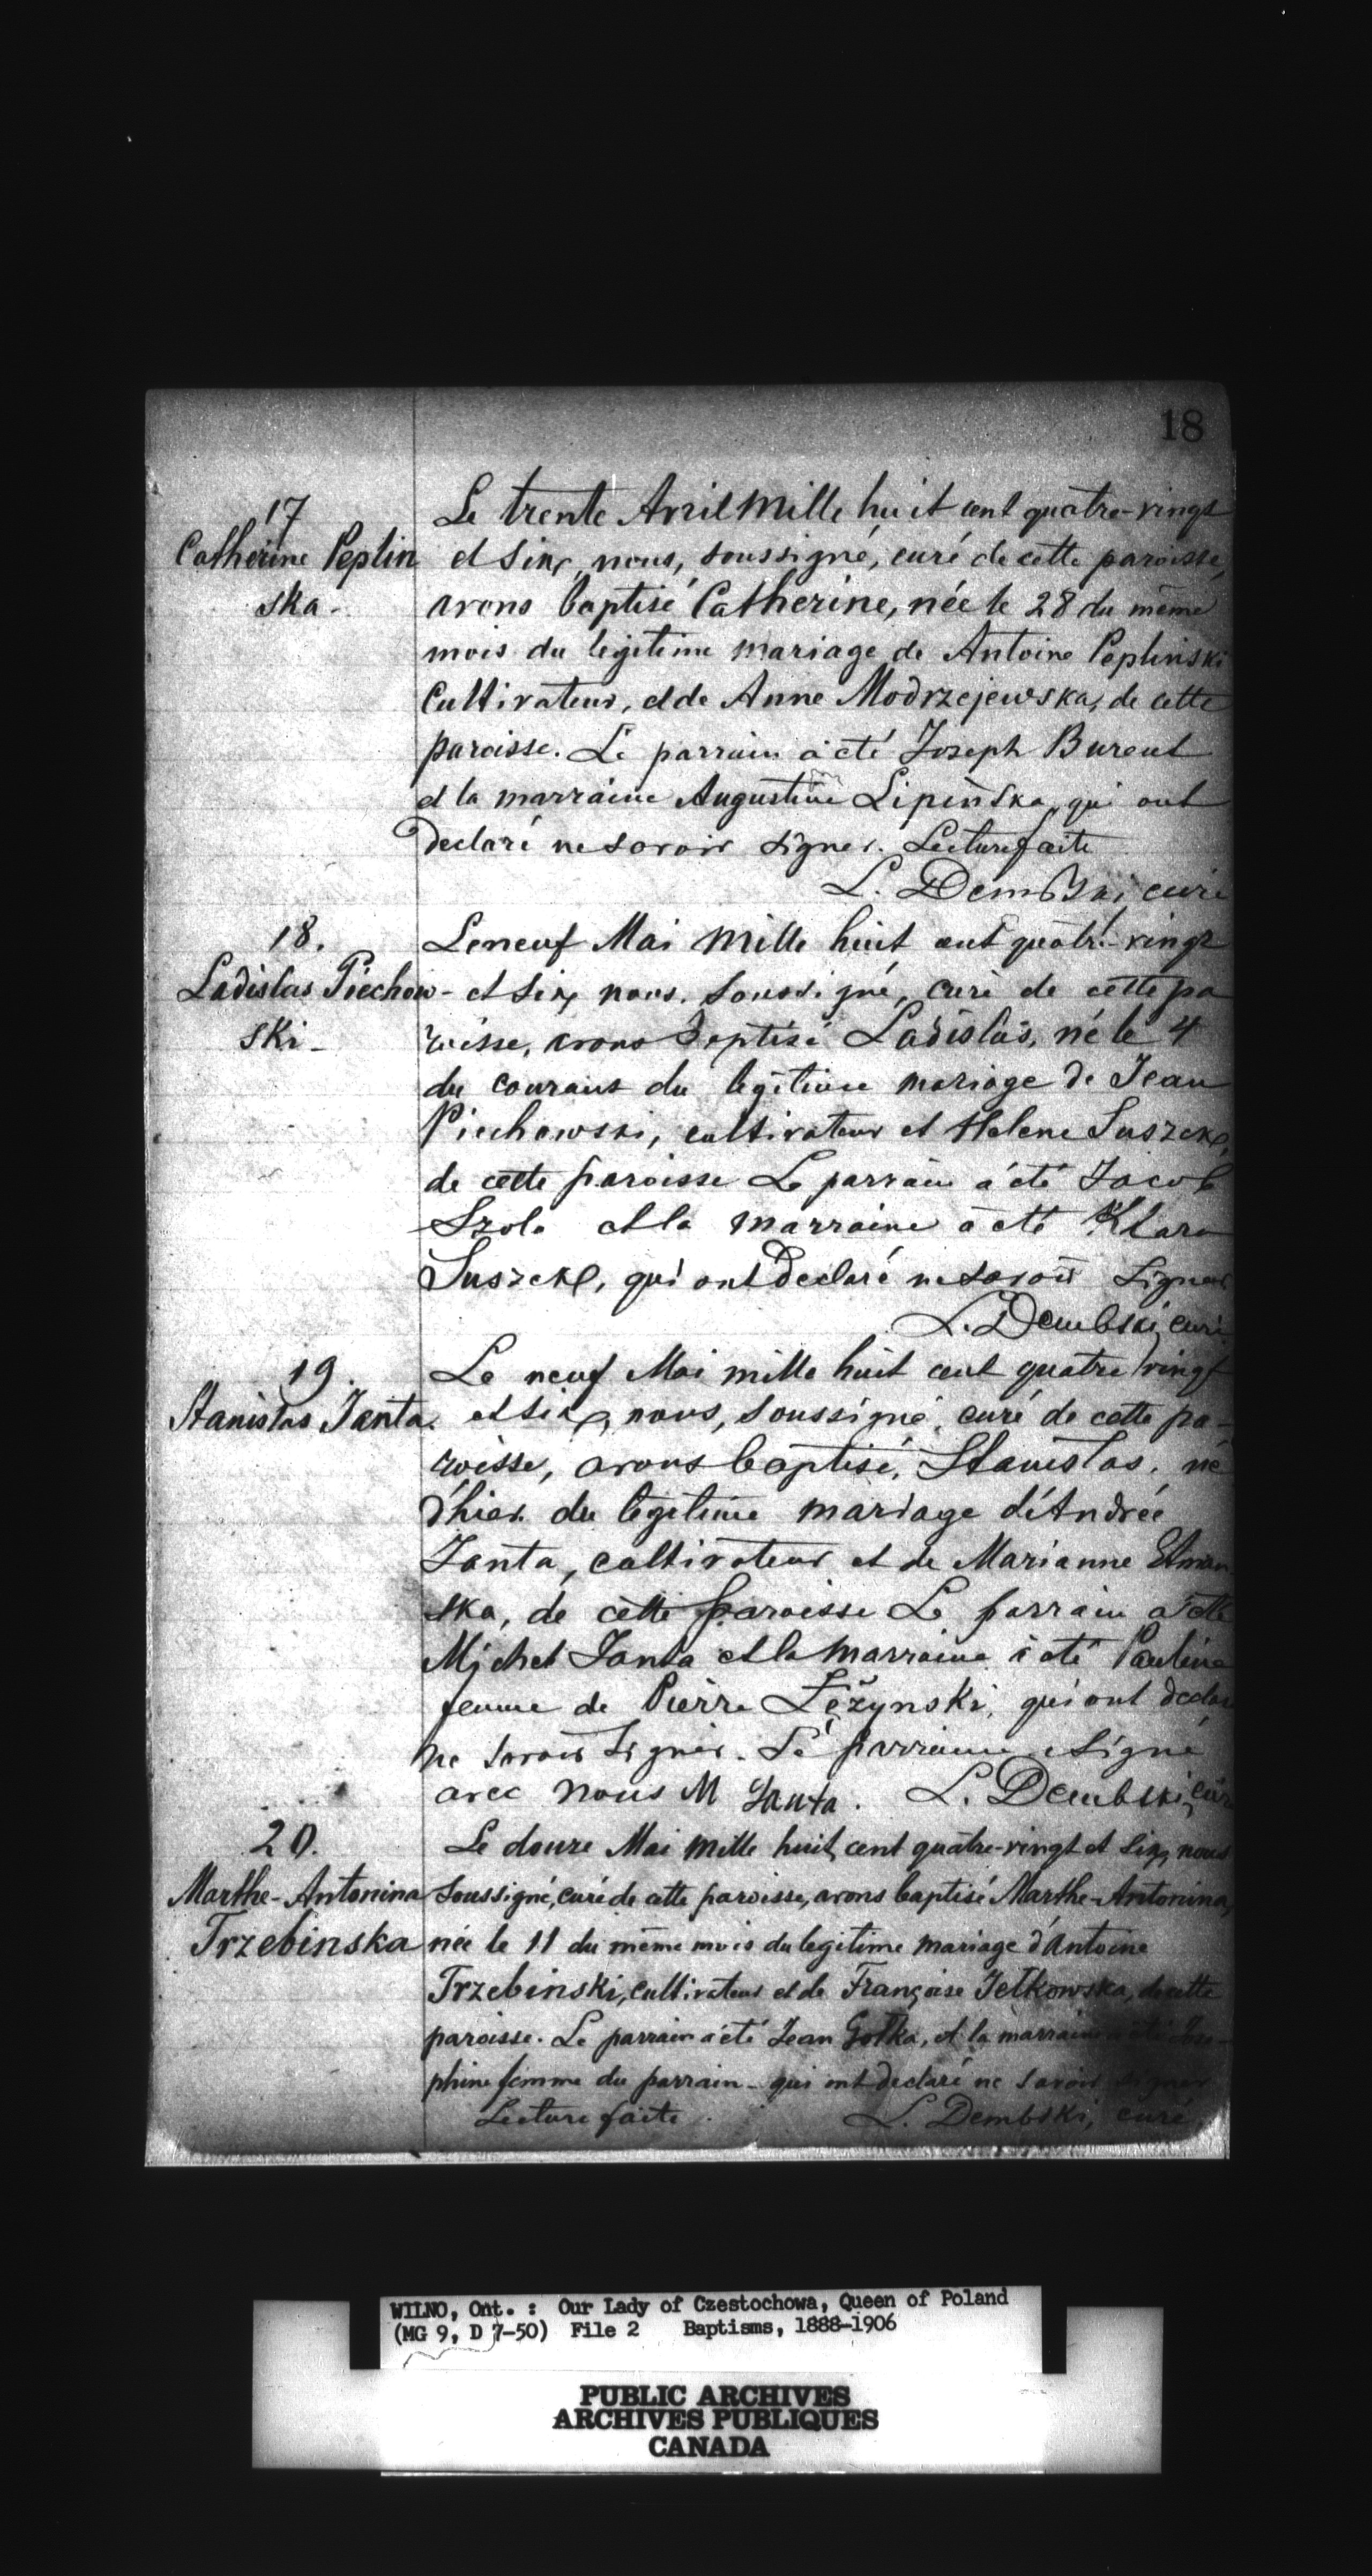 18
17
Catherine Peplin
ska -
Le trente Avril Mille huit cent quatre-vingt
et six, nous, soussigné, curé de cette paroisse,
avons baptisé Catherine, née le 28 du même
mois du legitime mariage de Antoine Peplinski
Cultivateur, et de Anne Modrzejewska, de cette
paroisse. Le parrain a été Joseph Burent
et la marraine Augustine Lipinska, qui ont
declaré ne savoir signer. Lecture faite
L. Dembski, curé
18.
Ladislas Piechow-
ski -
Le neuf Mai Mille huit cent quatre-vingt
et six, nous, soussigné, curé de cette pa
roisse, avons baptisé Ladislas, né le 4
du courant du legitime mariage de Jean
Piechowski, cultivateur et Helene Suszek,
de cette paroisse Le parrain a été Jacob
Szola et la marraine a été Klara
Suszek, qui ont declaré ne savoir signer
L. Dembski, curé
19.
Stanislas Janta.
Le neuf Mai mille huit cent quatre vingt
et six, nous, soussigné, curé de cette pa-
roisse, avons baptisé, Stanislas, né
d'hier du legitime mariage d'Andrée
Janta, cultivateur et de Marianne Etman
ska, de cette paroisse Le parrain a été
Michel Janta et la marraine a été Pauline
femme de Pierre Łężynski, qui ont declaré
ne savoir signer. Le parraine signé
avec nous M Janta. L. Dembski, curé
20.
Marthe-Antonina
Trzebinska
Le douze Mai Mille huit cent quatre-vingt et six, nous
soussigné, curé de cette paroisse, avons baptisé Marthe-Antonina,
née le 11 du même mois du legitime mariage d'Antoine
Trzebinski, cultivateur et de Françoise Jetkowska, de cette
paroisse. Le parrain a été Jean Golka, et la marraine a été Jose-
phine femme du parrain - qui ont declaré ne savoir signer
Lecture faite. L. Dembski, curé
WILNO, Ont. : Our Lady of Czestochowa, Queen of Poland
(MG 9, D 7-50) File 2 Baptisms, 1888-1906
PUBLIC ARCHIVES
ARCHIVES PUBLIQUES
CANADA